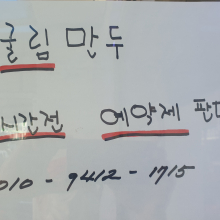 굴림 만두
시간전 예약제 판매
010-9412-1715